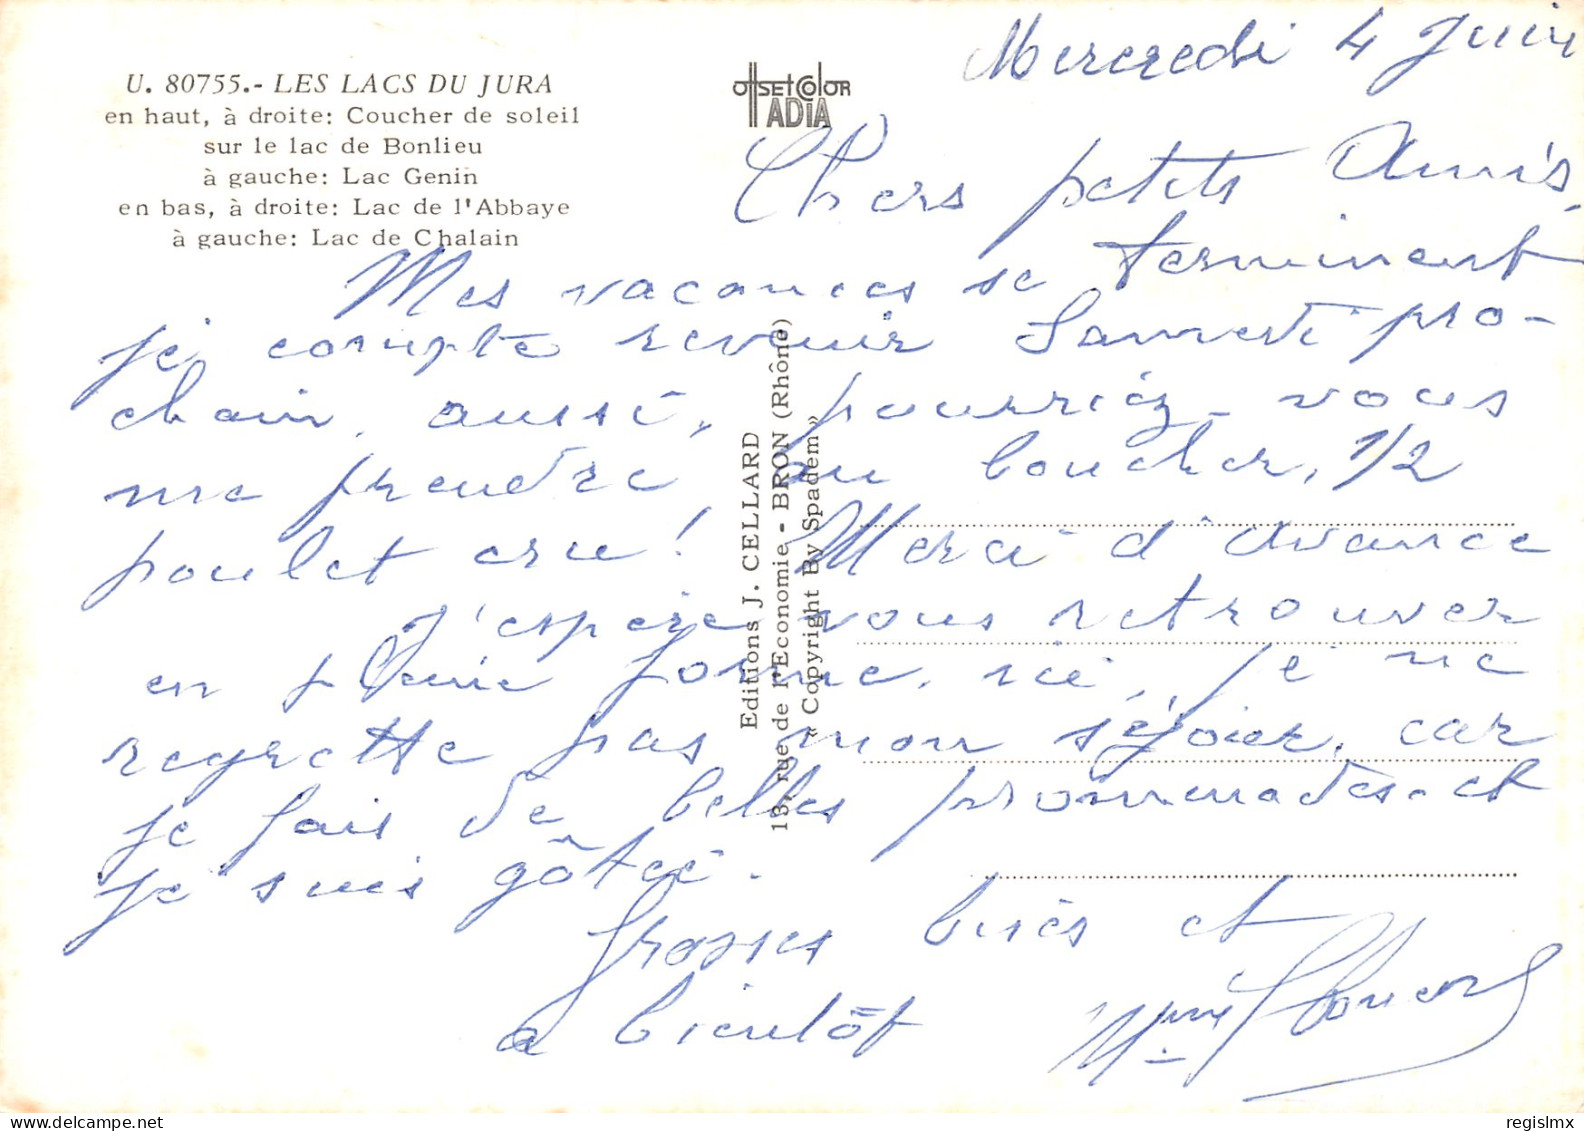 Mercredi 4 Juin
U. 80755.- LES LACS DU JURA
en haut, à droite: Coucher de soleil
sur le lac de Bonlieu
à gauche: Lac Genin
en bas, à droite: Lac de l'Abbaye
à gauche: Lac de Chalain
OffSET COLOR
IADIA
Chers petits Amis,
Mes vacances se terminent
je compte revenir Samedi pro-
chain, aussi, pourriez-vous
me prendre, au boucher, 1/2
poulet cru! Merci d'avance
J'espère vous retrouver
en pleine forme, ici, je ne
regrette pas mon séjour, car
je fais de belles promenades. et
je suis gâtée.
Grosses bises et
a bientôt
Mme
Editions J. CELLARD
13, rue de l'Economie - BRON (Rhône)
« Copyright By Spadem »
delcampe.net
regislmx